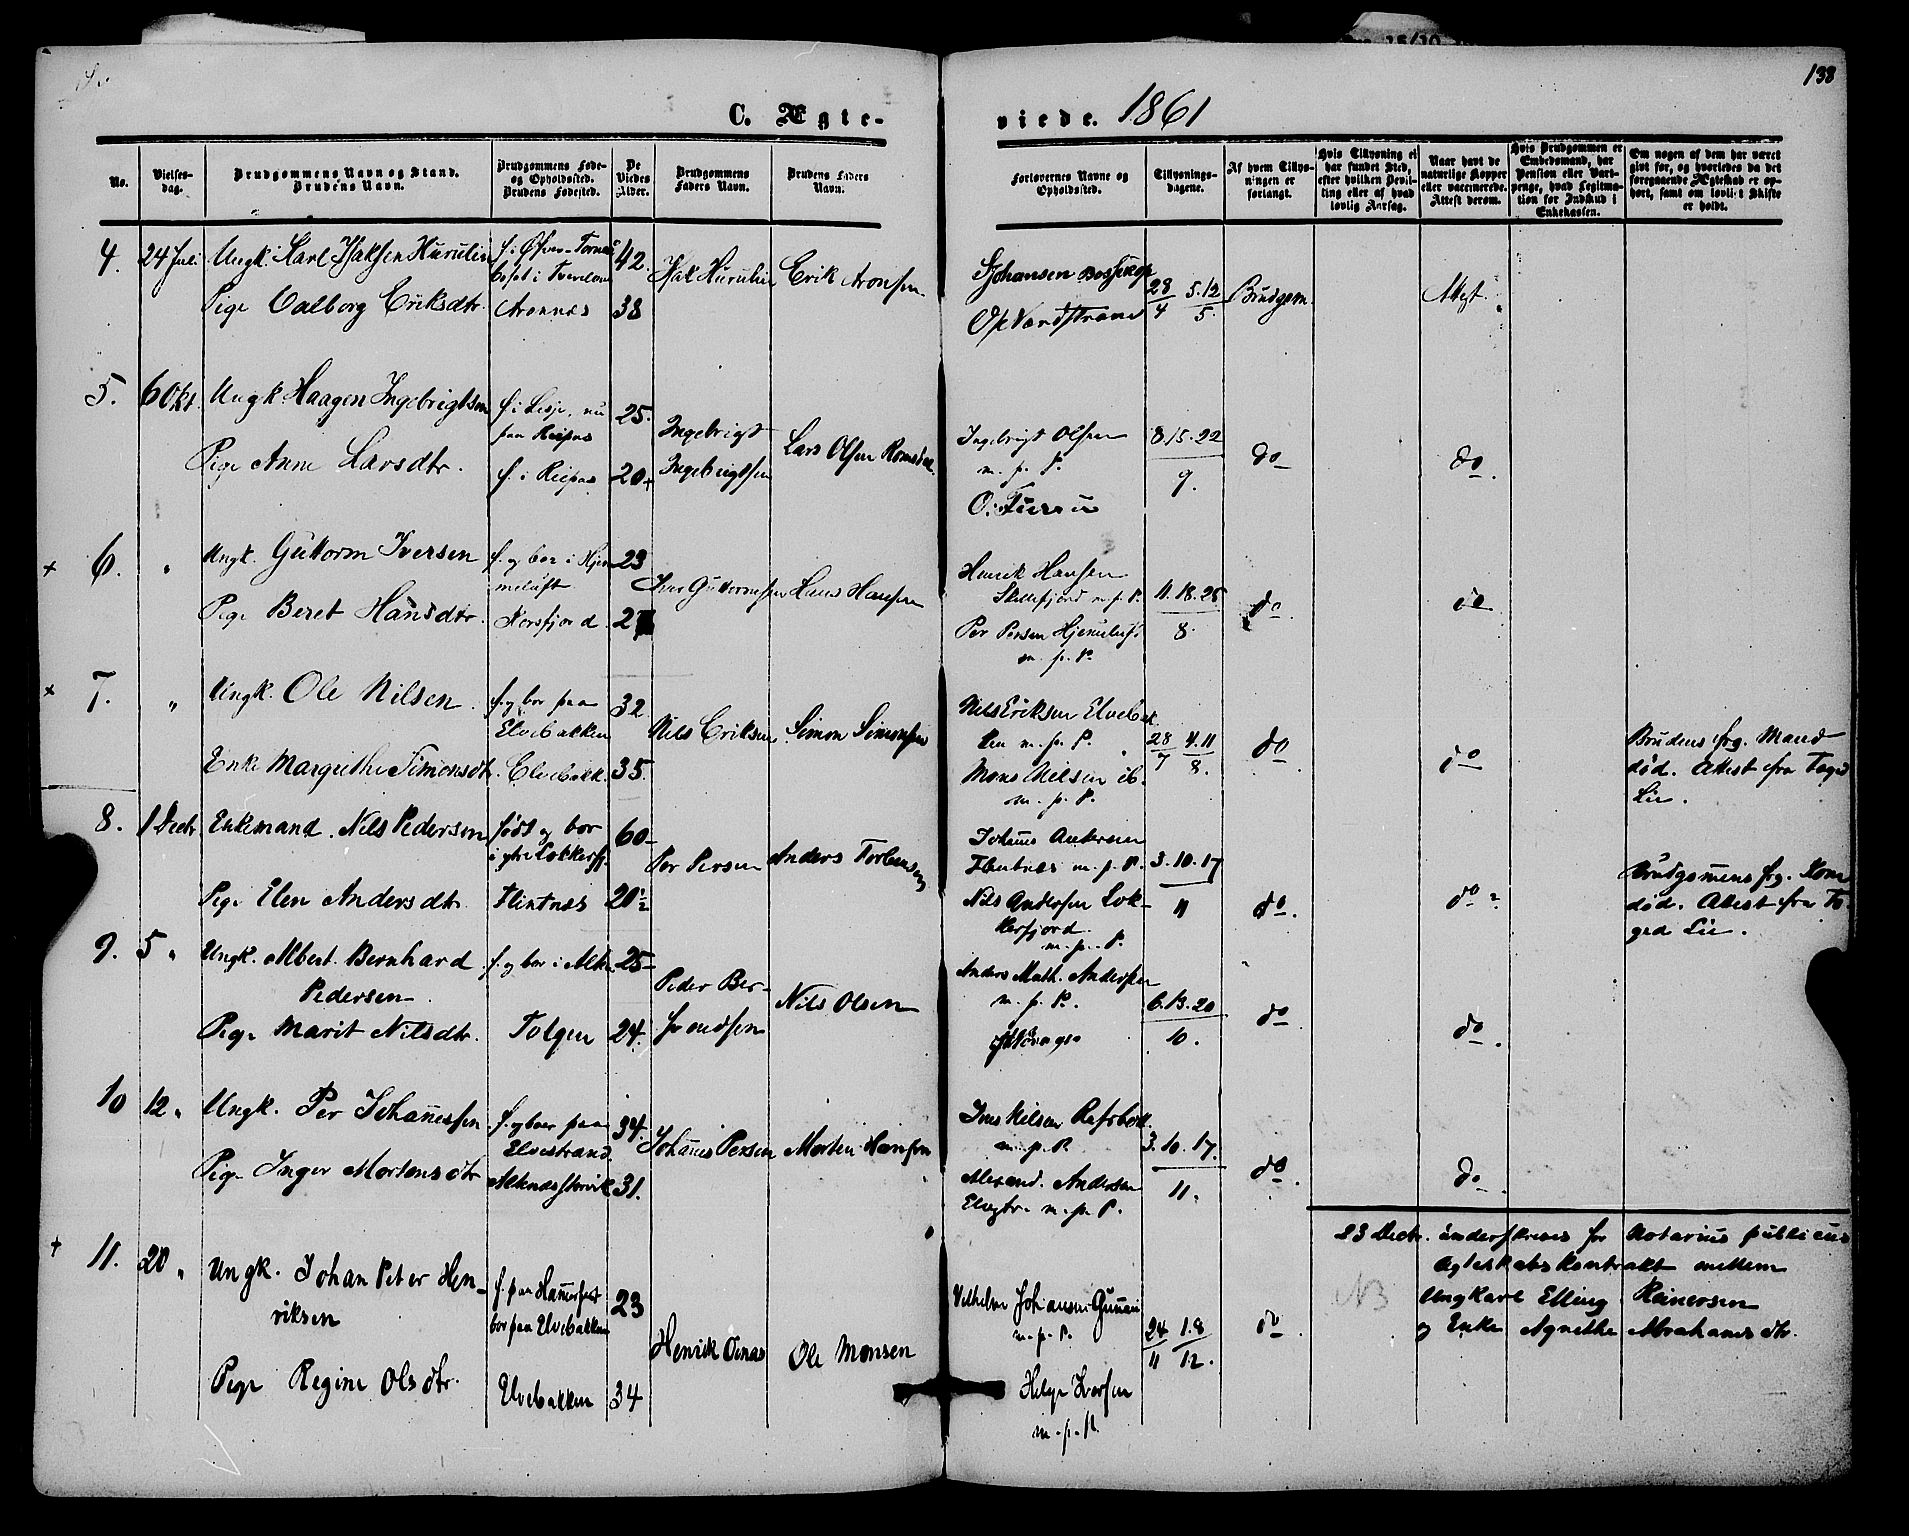 138
C. Ægte-
viede. 1861
No.
Vielses-
dag.
Brudgommens Navn og Stand.
Brudens Navn.
Brudgommens Føde-
og Opholdssted.
Brudens Fødested.
De
Viedes
Alder.
Brudgommens
Faders Navn.
Brudens Faders
Navn.
Forlovernes Navne og
Opholdssted.
Tillysnings-
dagene.
Af hvem Tillys-
ningen er
forlangt.
Hvis Tillysning ei
har fundet Sted,
efter hvilken Bevil-
ling eller af hvad
lovlig Aarsag.
Naar havt de
naturlige Kopper
eller vaccinerede.
Attest derom.
Hvis Brudgommen er
Embedsmand, har
Pension eller Vart-
penge, hvad Legitima-
tion for Indskud i
Enkekassen.
Om nogen af dem har været
givt før, og hvorledes da det
foregaaende Ægteskab er op-
hørt, samt om lovligt Skifte
er holdt.
4. 24 Juli Ungk. Karl Isaksen Hurulin 42. Isak Hurulin Erik Aronsen
Pige Valborg Eriksdtr. Aronnes 38
Johansen Bossekop
28/4 5.12/5. Brudgom. Attest.
5. 6 Okt. Ungk. Haagen Ingebrigtsen f. i Lesje, nu
paa Reipas 25. Ingebrigt
Ingebrigtsen Lars Olsen Romsdal
Pige Anne Larsdtr. f. i Reipas 20
Ingebrigt Olsen
m. p. P.
8.15.22
9. do do
6. " Ungk. Guttorm Iversen f. og bor i Hjem-
meluft 23 Iver Guttormsen Hans Hansen
Pige Beret Hansdtr. Korsfjord 27
Henrik Hansen
Skillefjord m. p. P. 11.18.25
8. do do
Per Persen Hjemeluft
m. p. P.
7. " Ungk. Ole Nilsen f. og bor paa
Elvebakken 32 Nils Eriksen Simon Simonsen
Enke Margrethe Simonsdtr. Elvebakk. 35.
Nils Eriksen Elvebak-
ken m. p. P. 28/7 4.11/8. do do
Mons Nilsen ib.
m. p. P.
Brudens frg. Mand
død. Attest fra Foged
Lie.
8. 1 Decbr Enkemand. Nils Pedersen født og bor
i ytre Lokkerfj. 60 Per Persen Anders
Pige Elen Andersdtr. Flintnæs 20½
Johannes Andersen
Flintnæs m. p. P. 3.10.17
11 do. do
Nils Andersen Lok-
kerfjord.
m. p. P.
Brudgommens frg. Kone
død. Attest fra Fo-
ged Lie.
9. 5 " Ungk. Albert Bernhard
Pedersen f. og bor i Alten 25 Peder Ber-
Nils Olsen
Pige Marit Nilsdtr. Tolgen 24.
Anders Math. Andersen
m. p. P. 6.13.20
10. do do
10 12 " Ungk. Per Johannessen f. og bor paa
Elvestrand. 34. Johannes Persen Morten Hansen
Pige Inger Mortensdtr 31.
Jens Nilsen Rafsbott
m. p. P. 3.10.17.
11. do do
Alexand. Andersen
m. p. P.
11. 20 " Ungk. Johan Peter Hen-
riksen f. paa Hammerfest
bor paa Elvebakken 23 Henrik Oinas Ole Monsen
Pige Regine Olsdtr. Elvebakken 34
Vilhelm Johansen
m. p. P. 24/11 1.8/12. do
Helge Iversen
m. p. P.
NB
23 Decbr. underskreves for Notarius publicus
Ægteskabskontrakt mellem
Ungkarl Elling Reinersen
og Enke Agnethe Abrahamsdtr.